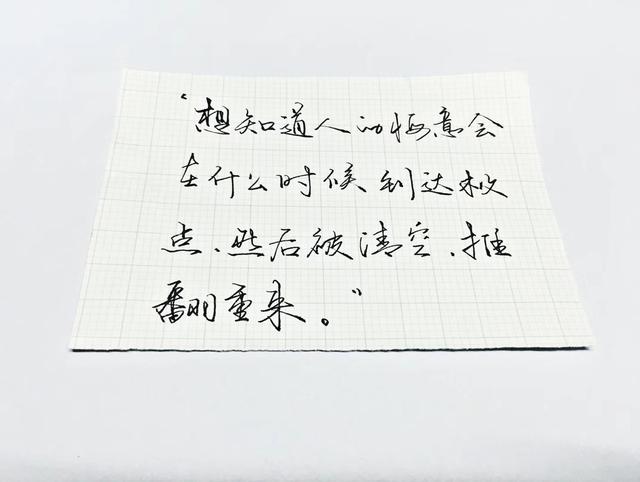 “想知道人的悔意会
在什么时候到达极
点、然后被清空、推
翻重来。”